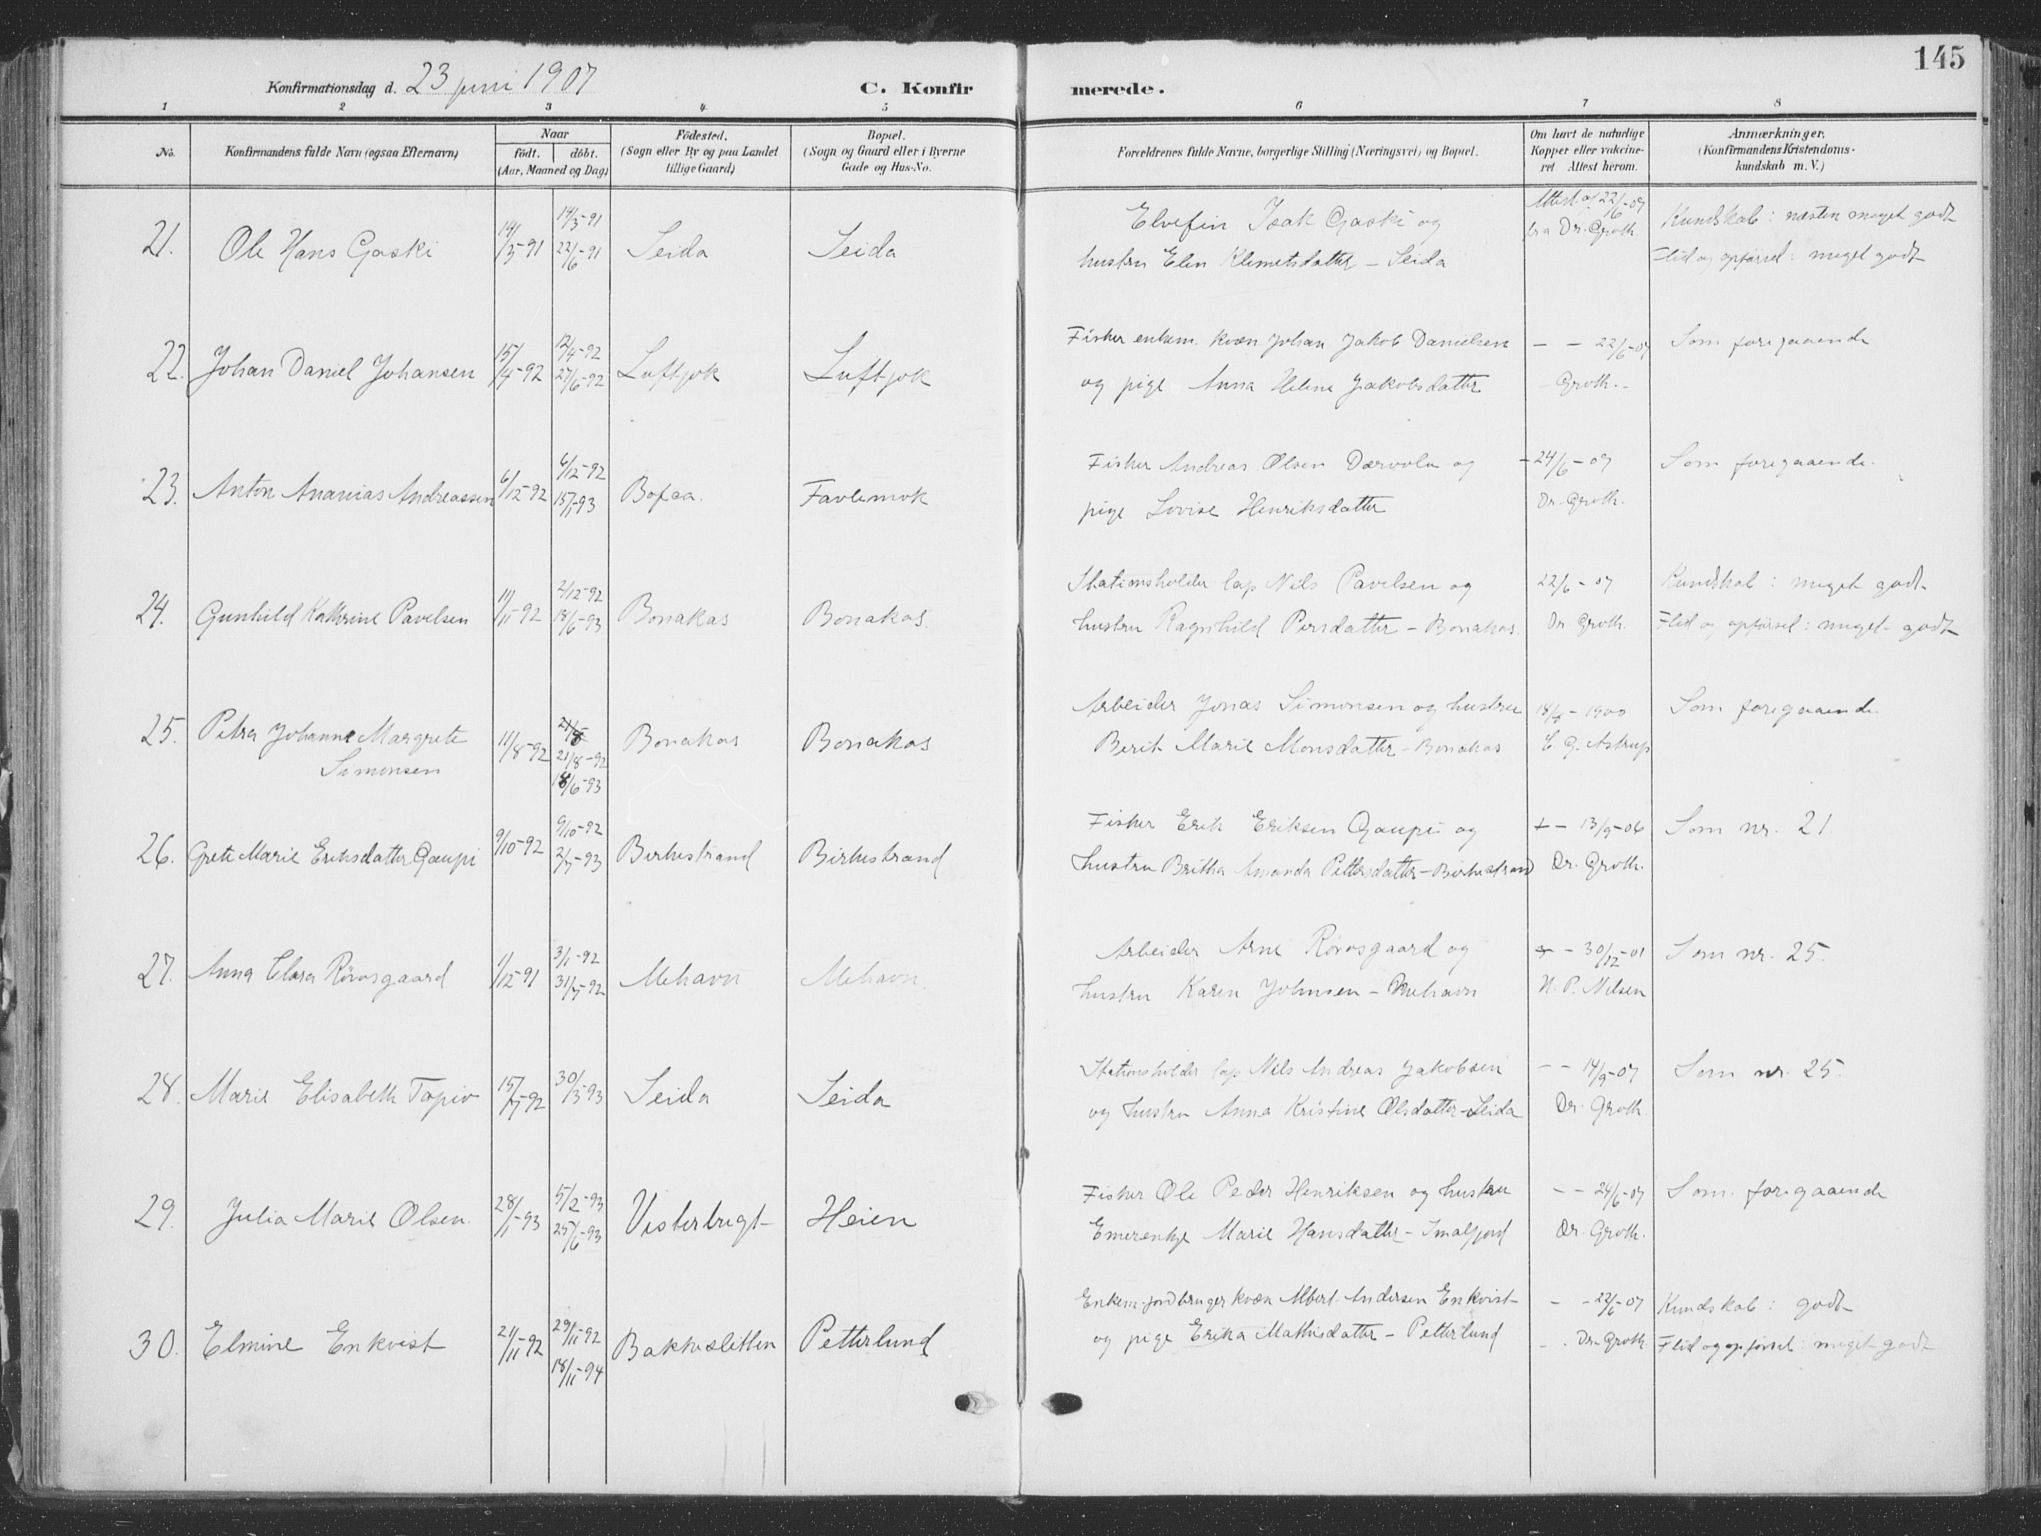 145
Konfirmationsdag d. 23 juni 1907
C. Konfir merede.
1 2 3 4 5 6 7 8
No.
Konfirmandens fulde Navn (ogsaa Efternavn)
Naar
født. døbt.
(Aar, Maaned og Dag)
Födested.
(Sogn eller By og paa Landet
tillige Gaard)
Bopæl.
(Sogn og Gaard eller i Byerne
Gade og Hus-No.
Forældrenes fulde Navne, borgerlige Stilling (Næringsvei) og Bopæl.
Om havt de naturlige
Kopper eller vakcine-
ret Attest herom.
Anmærkninger.
(Konfirmandens Kristendoms-
kundskab m. V.)
21. Ole Hans Gaski 14/3-91 14/3-91 22/6-91 Seida Seida
Elvefin Isak Gaski og
hustru Elen Klemetsdatter - Seida
Attest af 22/6-07
fra Dr. Groth.
Kundskab: næsten meget godt
Flid og opförsel: meget godt
22. Johan Daniel Johansen 15/4-92 12/4-92 27/6-92 Luftjok Luftjok
Fisker enkem. kvæn Johan Jakob Danielsen
og pige Anna Helene Jakobsdatter
- - 22/6-07
Groth.
Som foregaaende
23. Anton Ananias Andreassen 6/12-92 6/12-92 15/1-93 Favlemok
Fisker Andreas Olsen og
pige Lovise Henriksdatter
24/6-07
Dr. Groth.
Som foregaaende.
24. Gunhild Kathrine Pavelsen 11/11-92 2/12-92 18/6-93 Bonakas Bonakas.
Stationsholder lap Nils Pavelsen og
hustru Ragnhild Persdatter - Bonakas.
22/6-07
Dr. Groth.
Kundskab: meget godt.
Flid og opförsel: meget godt
25. Petra Johanne Margrete
Simonsen
11/8-92 21/8 21/8-92 18/6-93 Bonakas Bonakas
Arbeider Jonas Simonsen og hustru
Berit Marie Monsdatter - Bonakas
- 1900
C. G. Astrup
Som foregaaende.
26. Grete Marie Eriksdatter Gaupi 9/10-92 9/10-92 2/7-93 Birkestrand Birkestrand
Fisker Erik Eriksen Gaupi og
hustru Britha Amanda Pettersdatter - Birkestrand
- 13/9-06
Dr. Groth.
Som nr. 21.
27. Anna Clara Rörosgaard 1/12-91 3/1-92 31/7-92 Mehavn Mehavn.
Arbeider Arne Rörosgaard og
hustru Karen Johnsen - Mehavn
- 30/12-01
N. P. Nilsen
Som nr. 25.
28. Marie Elisabeth Tapio 15/7-92 30/3-93 Seida Seida
Stationsholder lap Nils Andreas Jakobsen
og hustru Anna Kristine Olsdatter - Seida
- - 14/9-07
Dr. Groth.
Som nr. 25.
29. Julia Marie Olsen. 28/1-93 5/2-93 25/6-93 Vesterbugt Heien
Fisker Ole Peder Henriksen og hustru
Emerentje Marie Hansdatter - Smalfjord
- - 24/6-07
Dr. Groth.
Som foregaaende
30. Elmine Enkvist 21/11-92 29/11-92 18/11-94 Bakkesletten Petterlund
Enkem. jordbruger kvæn Albert Andersen Enkvist
og pige Erika Mathisdatter - Petterlund
- - 22/6-07
Dr. Groth
Kundskab: godt
Flid og opförsel: meget godt